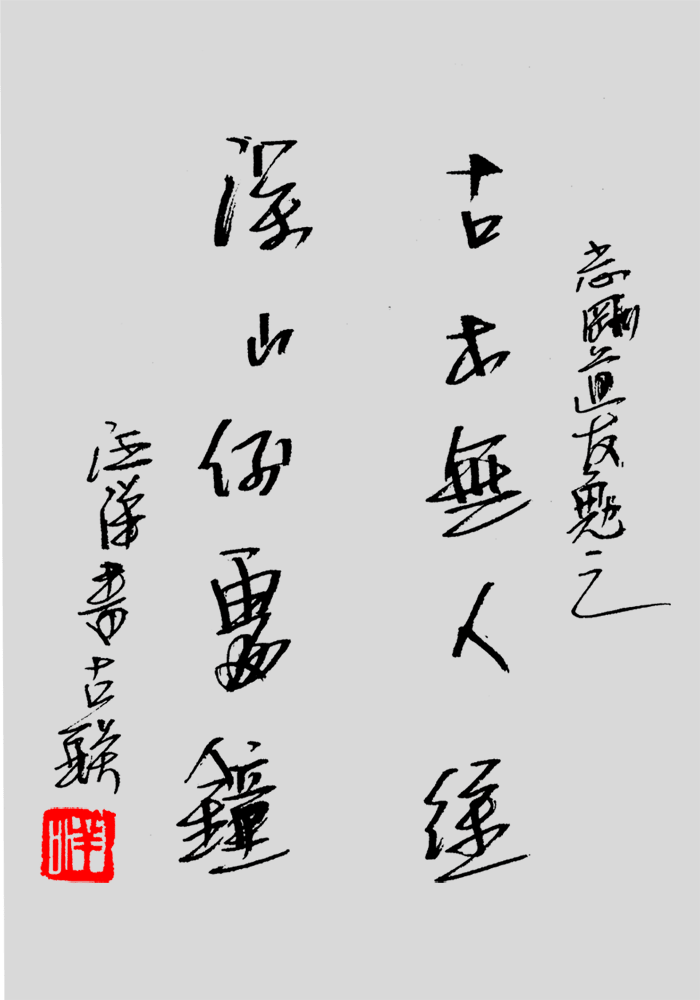 志剛道友勉之
古木無人徑
深山何處鐘
汪洋書古联